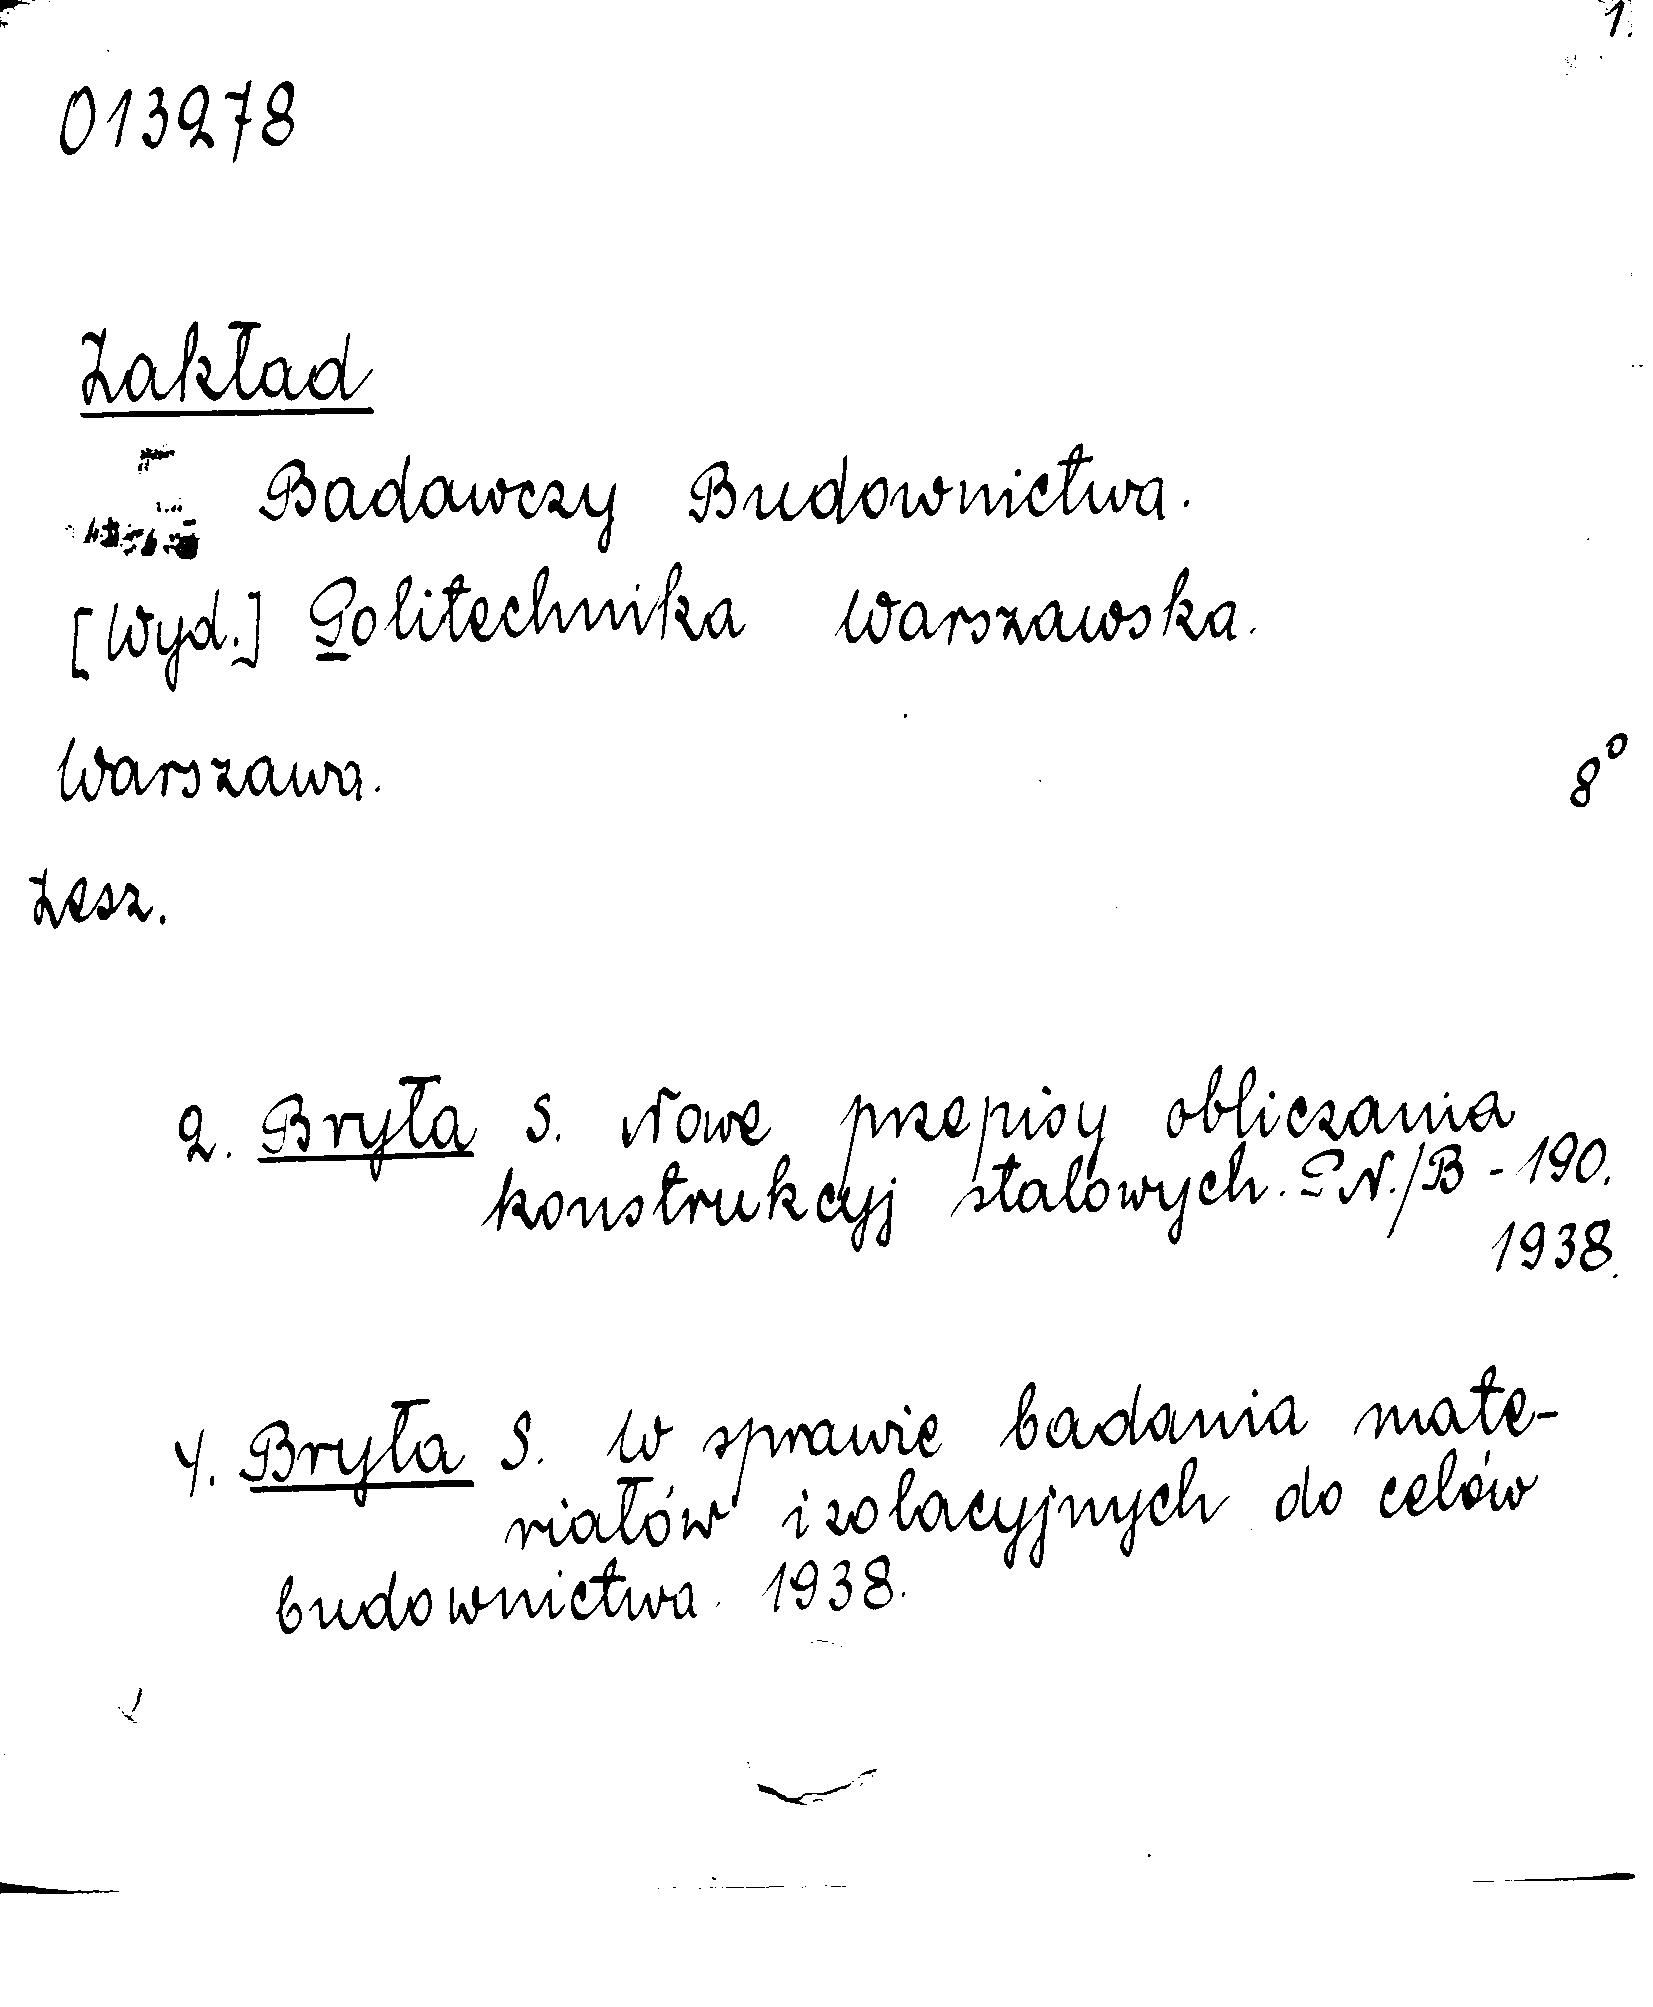 1.
013278
Zakład
Badawczy Budownictwa.
[Wyd.] Politechnika Warszawska.
Warszawa. 8°
Zesz.
2. Bryła S. Nowe przepisy obliczania
konstrukcyj stalowych. PN./B - 190.
1938.
4. Bryła S. W sprawie badania mate-
riałów izolacyjnych do celów
budownictwa. 1938.